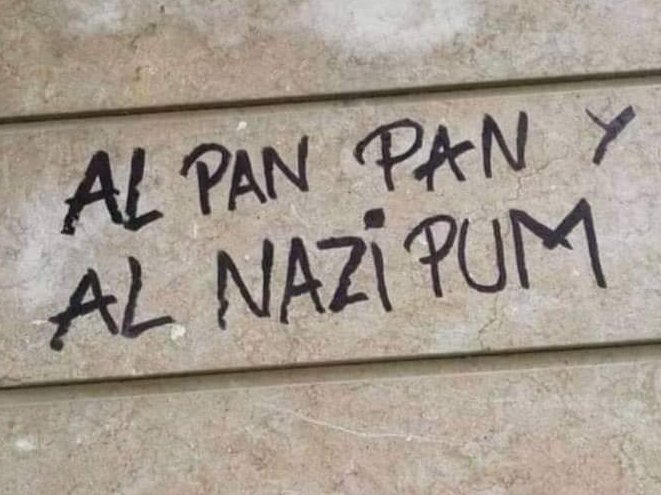 AL PAN PAN Y
AL NAZi PUM